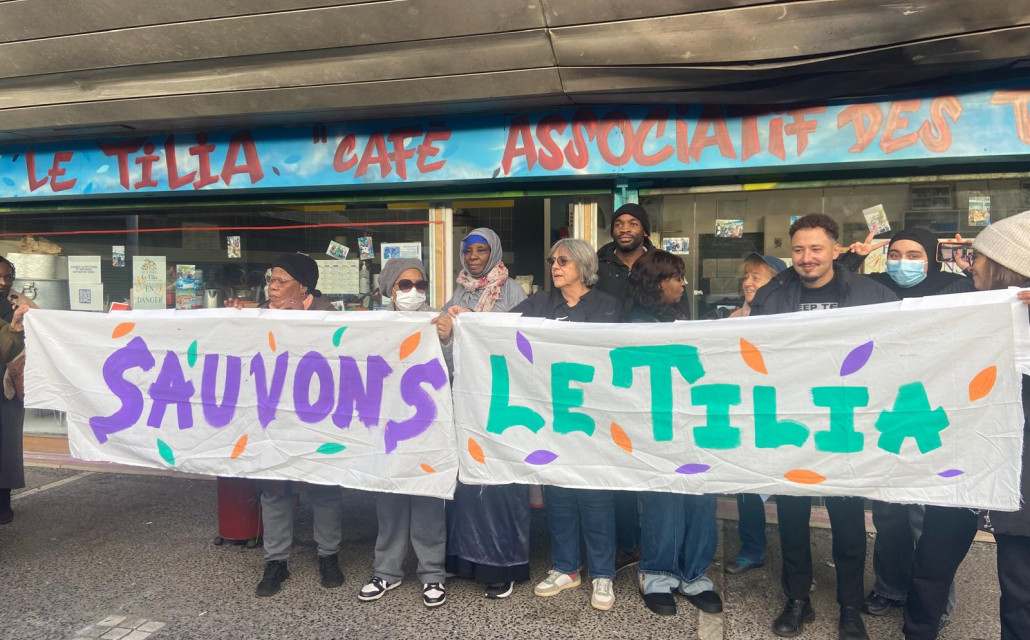 LE TILIA "CAFÉ ASSOCIATIF DES T
SAUVONS LE TILIA
EN DANGER